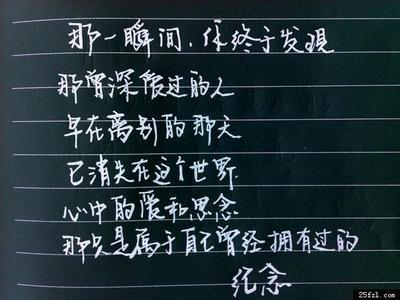 那一瞬间，你终于发現
那曾深爱过的人
早在离别的那天
已消失在这个世界
心中的爱和思念
那只是属于自己曾经拥有过的
纪念
25fzl.com